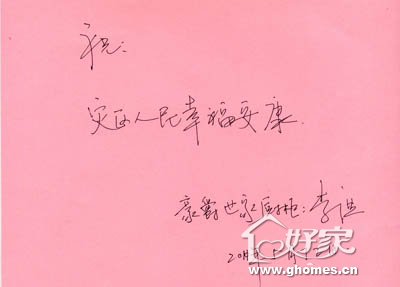 祝:
灾区人民幸福安康.
豪爵世家厨柜:李
年5月
好家
www.ghomes.cn